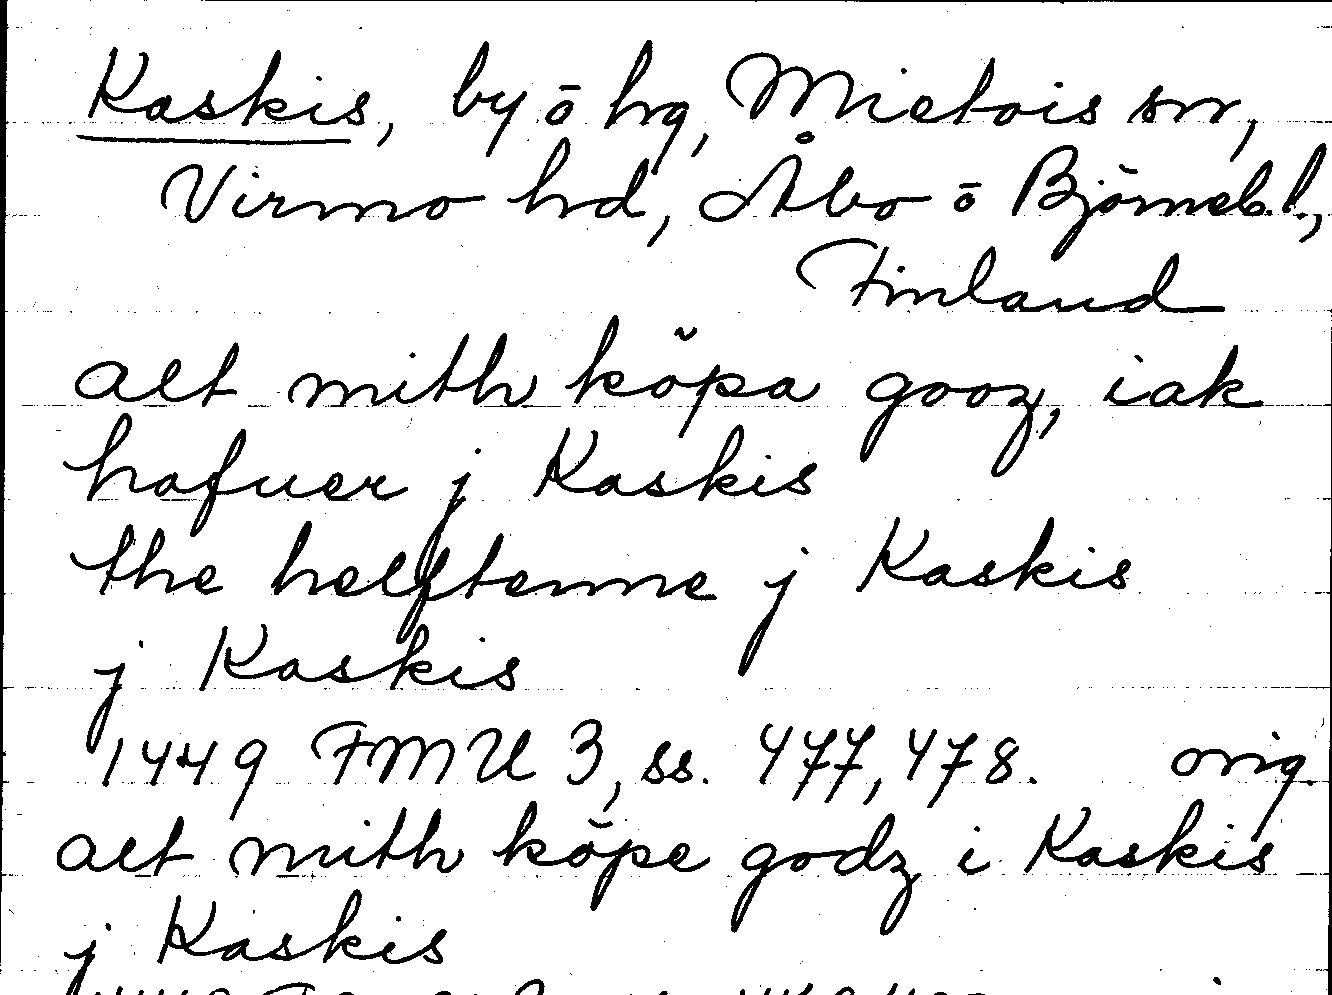 Kaskis, by ō hg, Mietois sn,
Virmo hd, Åbo ō Björneb. l.,
Finland
alt mith köpa gooz, iak
hafuer j Kaskis
the helftenne j Kaskis
j Kaskis
1449 FMU 3, ss. 477, 478. orig.
alt mith köpe godz i Kaskis
j Kaskis